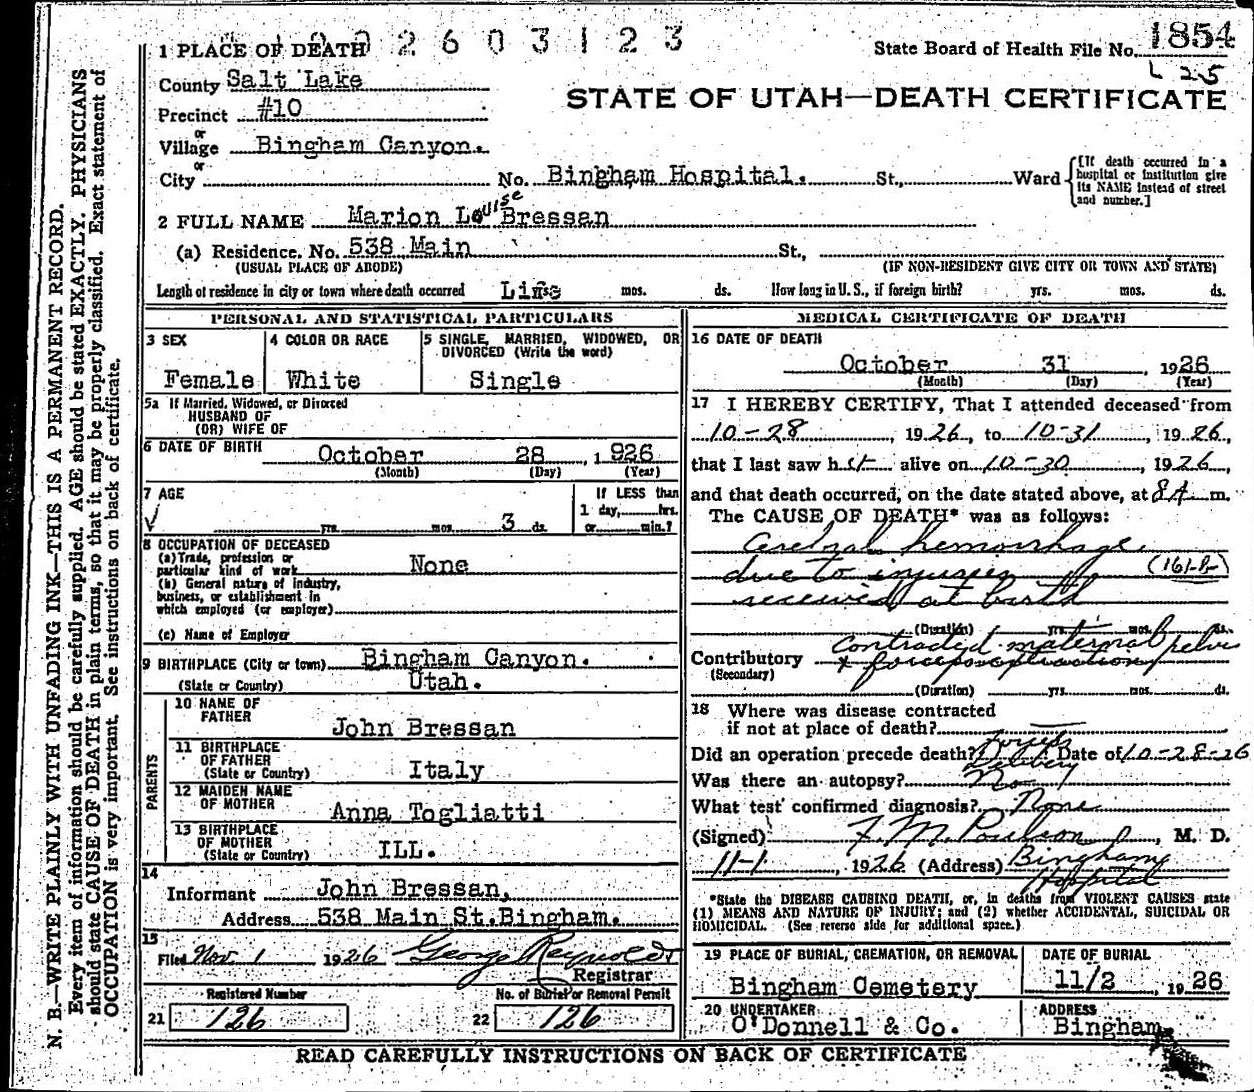 2 6 0 3 1 2 3
1 PLACE OF DEATH
State Board of Health File No. 1854
County Salt Lake
L 25
STATE OF UTAH—DEATH CERTIFICATE
Precinct #10
or
Village Bingham Canyon.
or
City No. Bingham Hospital. St., Ward
[If death occurred in a hospital or institution give its NAME instead of street and number.]
2 FULL NAME Marion Louise Bressan
(a) Residence. No. 538 Main St.,
(USUAL PLACE OF ABODE) (IF NON-RESIDENT GIVE CITY OR TOWN AND STATE)
Length of residence in city or town where death occurred yrs. mos. ds. How long in U. S., if foreign birth? yrs. mos. ds.
PERSONAL AND STATISTICAL PARTICULARS
3 SEX
Female
4 COLOR OR RACE
White
5 SINGLE, MARRIED, WIDOWED, OR
DIVORCED (Write the word)
Single
5a If Married, Widowed, or Divorced
HUSBAND OF
(OR) WIFE OF
6 DATE OF BIRTH October 28, 1926
(Month) (Day) (Year)
7 AGE
yrs. mos. 3 ds.
If LESS than
1 day, hrs.
or min.?
8 OCCUPATION OF DECEASED
(a) Trade, profession or
particular kind of work None
(b) General nature of industry,
business, or establishment in
which employed (or employer)
(c) Name of Employer
9 BIRTHPLACE (City or town) Bingham Canyon.
(State or Country) Utah.
PARENTS
10 NAME OF
FATHER John Bressan
11 BIRTHPLACE
OF FATHER
(State or Country) Italy
12 MAIDEN NAME
OF MOTHER Anna Togliatti
13 BIRTHPLACE
OF MOTHER
(State or Country) ILL.
14
Informant John Bressan,
Address 538 Main St.Bingham.
15
Filed Nov 1 1926 George Reynolds
Registrar
Registered Number No. of Burial or Removal Permit
21 126 22 126
MEDICAL CERTIFICATE OF DEATH
16 DATE OF DEATH
October 31, 1926
(Month) (Day) (Year)
17 I HEREBY CERTIFY, That I attended deceased from
10-28, 1926, to 10-31, 1926,
that I last saw her alive on 10-30, 1926,
and that death occurred, on the date stated above, at 8 A m.
The CAUSE OF DEATH* was as follows:
Cerebral hemorrhage
due to injuries (161-B-)
received at birth
(Duration) yrs. mos. ds.
Contributory Contracted maternal pelvis
(Secondary) + forceps application
(Duration) yrs. mos. ds.
18 Where was disease contracted
if not at place of death?
Did an operation precede death? Forceps Delivery Date of 10-28-26
Was there an autopsy? No
What test confirmed diagnosis? None
(Signed) F. M. Poulson, M. D.
11-1, 1926 (Address) Bingham
Hospital
*State the DISEASE CAUSING DEATH, or, in deaths from VIOLENT CAUSES state
(1) MEANS AND NATURE OF INJURY; and (2) whether ACCIDENTAL, SUICIDAL OR
HOMICIDAL. (See reverse side for additional space.)
19 PLACE OF BURIAL, CREMATION, OR REMOVAL
Bingham Cemetery
DATE OF BURIAL
11/2, 1926
20 UNDERTAKER
O'Donnell & Co.
ADDRESS
Bingham.
READ CAREFULLY INSTRUCTIONS ON BACK OF CERTIFICATE
N. B.—WRITE PLAINLY WITH UNFADING INK—THIS IS A PERMANENT RECORD.
Every item of information should be carefully supplied. AGE should be stated EXACTLY. PHYSICIANS
should state CAUSE OF DEATH in plain terms, so that it may be properly classified. Exact statement of
OCCUPATION is very important. See instructions on back of certificate.